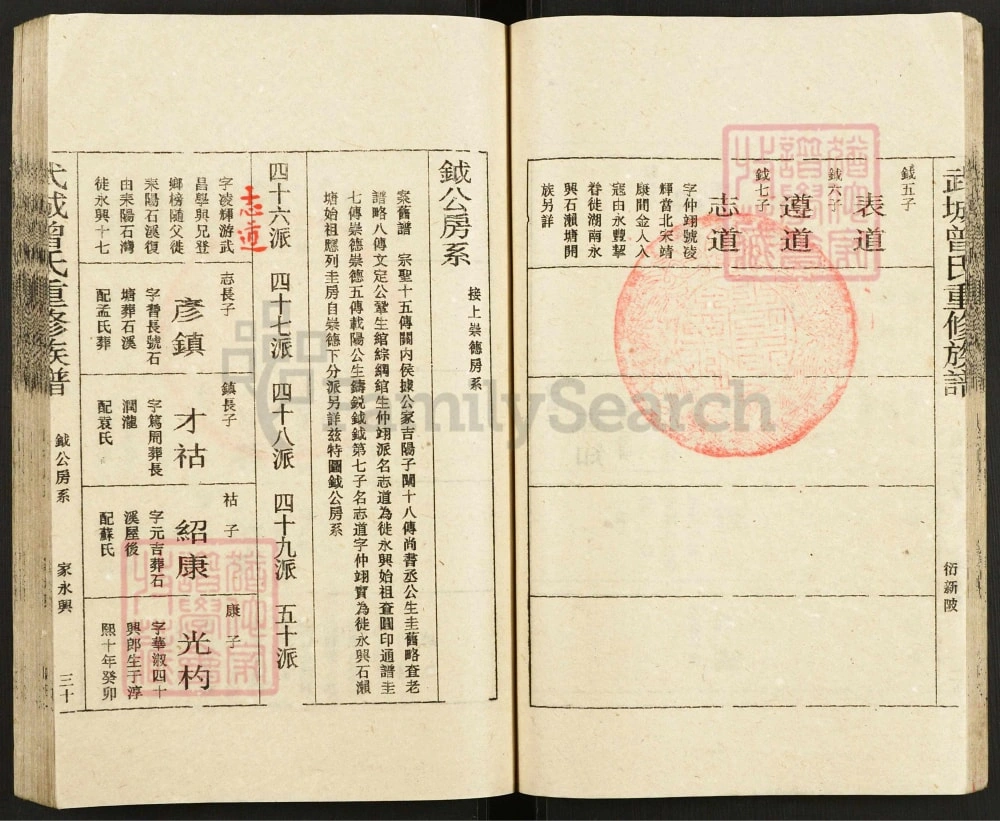 武城曾氏重修族譜
衍新陂
鉞五子
表道
鉞六子
遵道
鉞七子
志道
字仲翊號凌
輝當北宋靖
康間金人入
寇由永豐挈
眷徙湖南永
興石瀨塘開
族另詳
鉞公房系
接上崇德房系
案舊譜 宗聖十五傳關内侯據公家吉陽子闡十八傳尚書丞公生圭舊略查老
譜略八傳文定公鞏生綰綜綱綰生仲翊派名志道為徙永興始祖查圓印通譜圭
七傳崇德崇德五傳載陽公生鑄銳鉞鉞第七子名志道字仲翊實為徙永興石瀨
塘始祖應列圭房自崇德下分派另詳玆特圖鉞公房系
四十六派 四十七派 四十八派 四十九派 五十派
志道
字凌輝游武
昌學與兄登
鄉榜隨父徙
耒陽石溪復
由耒陽石灣
徙永興十七
志長子
彥鎮
字晉長號石
塘葬石溪
配孟氏葬
鎮長子
才祜
字篤周葬長
澗瀧
配袁氏
祜子
紹康
字元吉葬石
溪屋後
配蘇氏
康子
光杓
字華淑四十
興郎生于淳
熙十年癸卯
武城曾氏重修族譜
鉞公房系
家永興
三十
FamilySearch